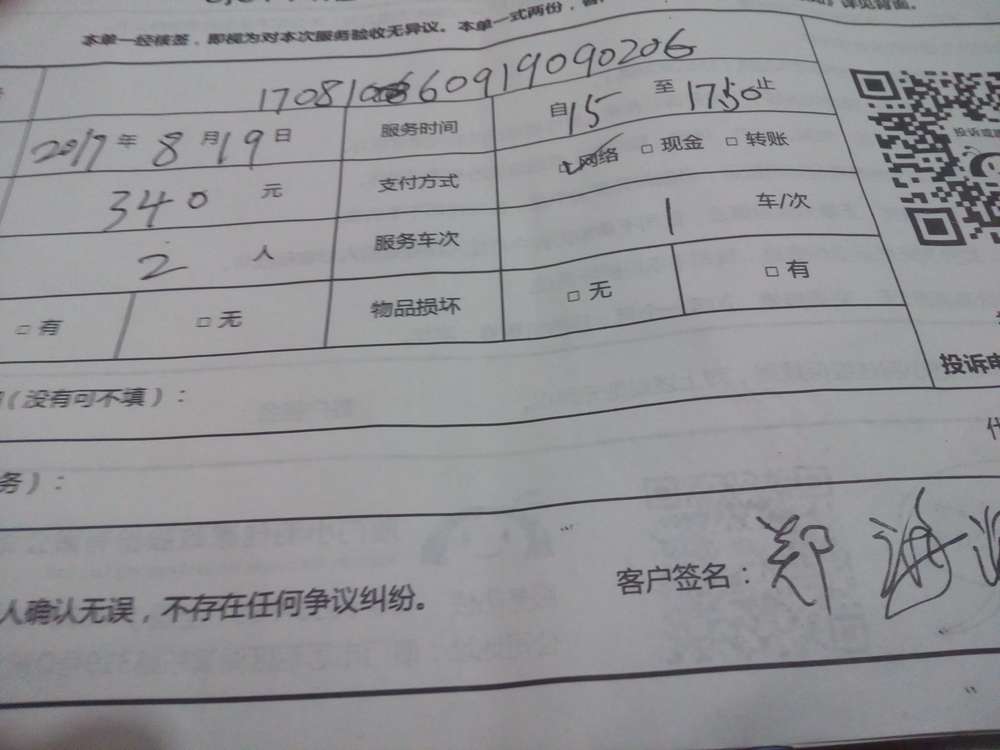 本单一经核签，即视为对本次服务验收无异议。本单一式两份，
详见背面。
2017年8月19日 服务时间 自15至17:50止
340元 支付方式 ☑网络 □现金 □转账
2人 服务车次 1车/次
□有 □无 物品损坏 □无 □有
（没有可不填）：
务）：
人确认无误，不存在任何争议纠纷。
客户签名：郑